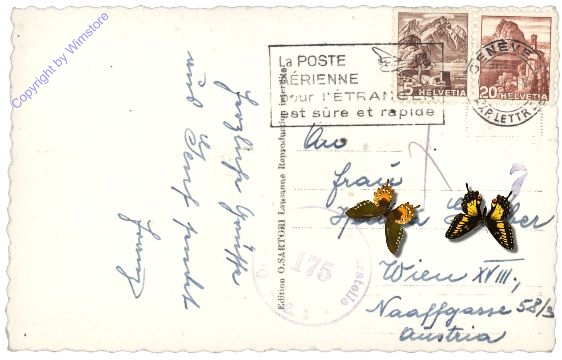 Copyright by Wimstore
Herzliche Grüsse
aus Genf sendet
Franz
Edition O. SARTORI Lausanne Reproduction interdite
La POSTE
AÉRIENNE
pour l'ÉTRANGER
est sûre et rapide
5 HELVETIA
20 HELVETIA
GENÈVE
EXP. LETTRES
7
An
Frau
Wien XVIII,
Naaffgasse 58/3
Austria
175